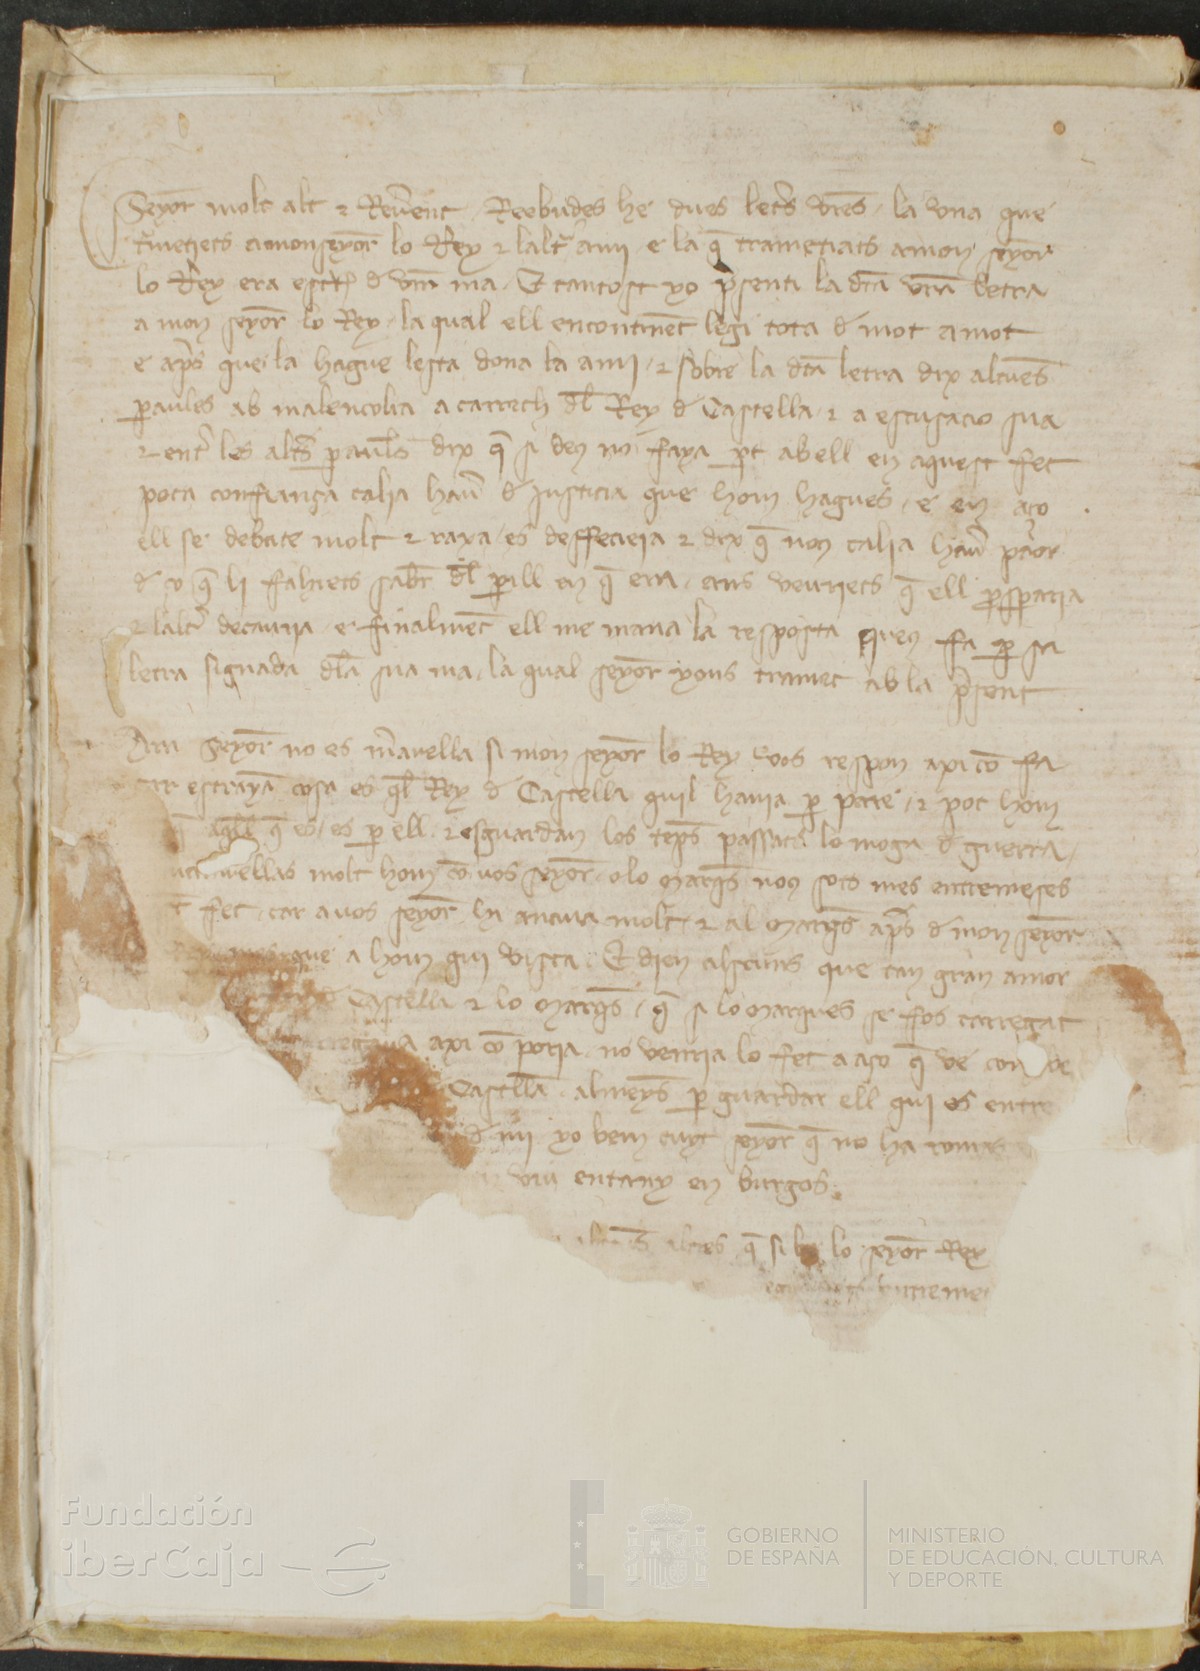 Seyor molt alt ⁊ Reuerent. Reebudes he dues letres vres. la vna que
trametiets amonseyor lo Rey ⁊ laltra ami. e la q̄ trametiats amon seyor
lo Rey era escrita d vr̄a ma. Et tantost yo p̄senti la dc̄a vr̄a letra
a mon seyor lo Rey. la qual ell encontinēt legi tota d mot amot
e ap̄s que la hague lesta dona la ami. ⁊ sobre la dc̄a letra dix alcunes
paraules ab malenconia a carrech dl̄ Rey d Castella. ⁊ a escusacio sua
⁊ entr les altr̄s paraul̄s dix q̄ si deu no faya p̄t abell en aquest fet
poca confiança calia hau̅ d justicia que hom hagues. e en aço
ell se debate molt ⁊ raya. es deffecieia ⁊ dix q̄ non calia hau̅ paor
d ço q̄ li fahiets saber dl̄ perill en q̄ era. ans veuriets q̄ ell prosperaria
⁊ laltr̄ decauria. e finalment ell me mana la resposta quen fa per sa
letra signada dl̄a sua ma. la qual seyor yous tramet ab la p̄sent
Ara Seyor no es m̄auella si mon seyor lo Rey vos respon axi cō fa
car estraya cosa es ql̄ Rey d Castella quil hauia per pare. ⁊ poc hom
q̄ aq̄ll q̄ es. es per ell. ⁊ esguardan los temps passats lo mogua d guerra.
molt hom cō vos seyor. o lo marq̄s non sots mes entremeses
fet. car a vos seyor hi anaua molt. ⁊ al marq̄s ap̄s d mon seyor
mes que a hom qui visca. Et dien alscuns que tan gran amor
Castella ⁊ lo marq̄s. q̄ si lo marques se fos carregat
axi cō poria. no venria lo fet a aço q̄ ve con
Castella. almeyns per guardar ell qui es entre
d mi yo bem cuyt seyor q̄ no ha
viu entany en burgos.
q̄ si lo seyor Rey
entreme
Fundación
iberCaja
GOBIERNO
DE ESPAÑA
MINISTERIO
DE EDUCACIÓN, CULTURA
Y DEPORTE